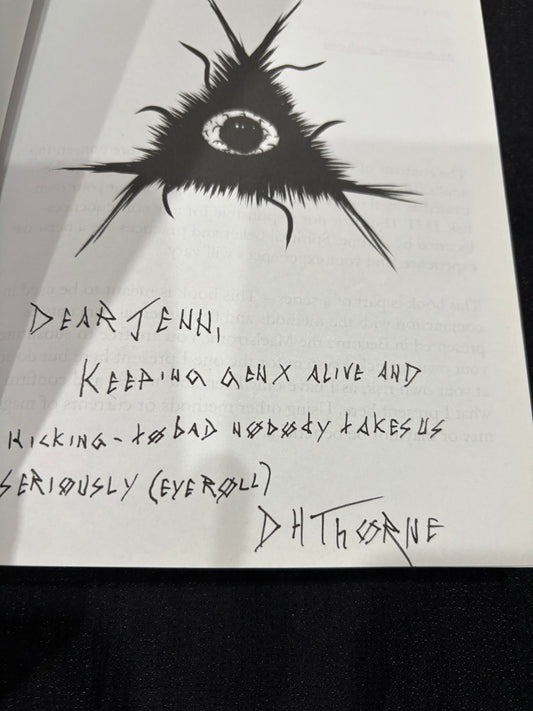 DEAR JENN,
KEEPING GENX ALIVE AND
KICKING - TO BAD NOBODY TAKES US
SERIOUSLY (EYEROLL)
DH THORNE